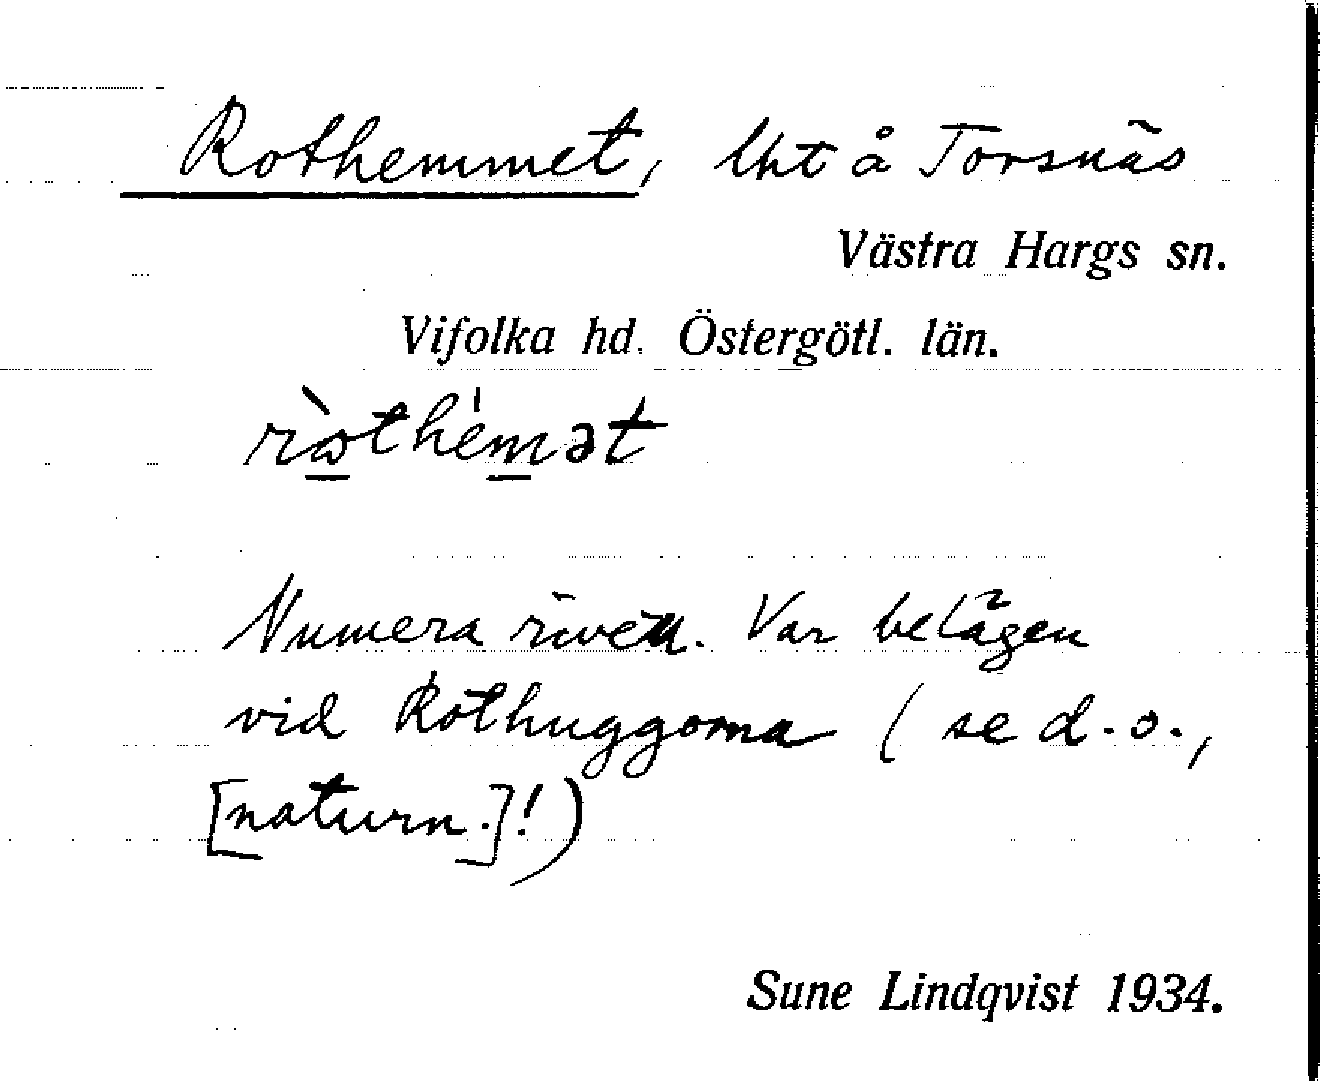 Rothemmet, lht å Torsnäs
Västra Hargs sn.
Vifolka hd. Östergötl. län.
ròthémət
Numera riven. Var belägen
vid Rothuggorna (se d.o.,
[naturn.]!)
Sune Lindqvist 1934.